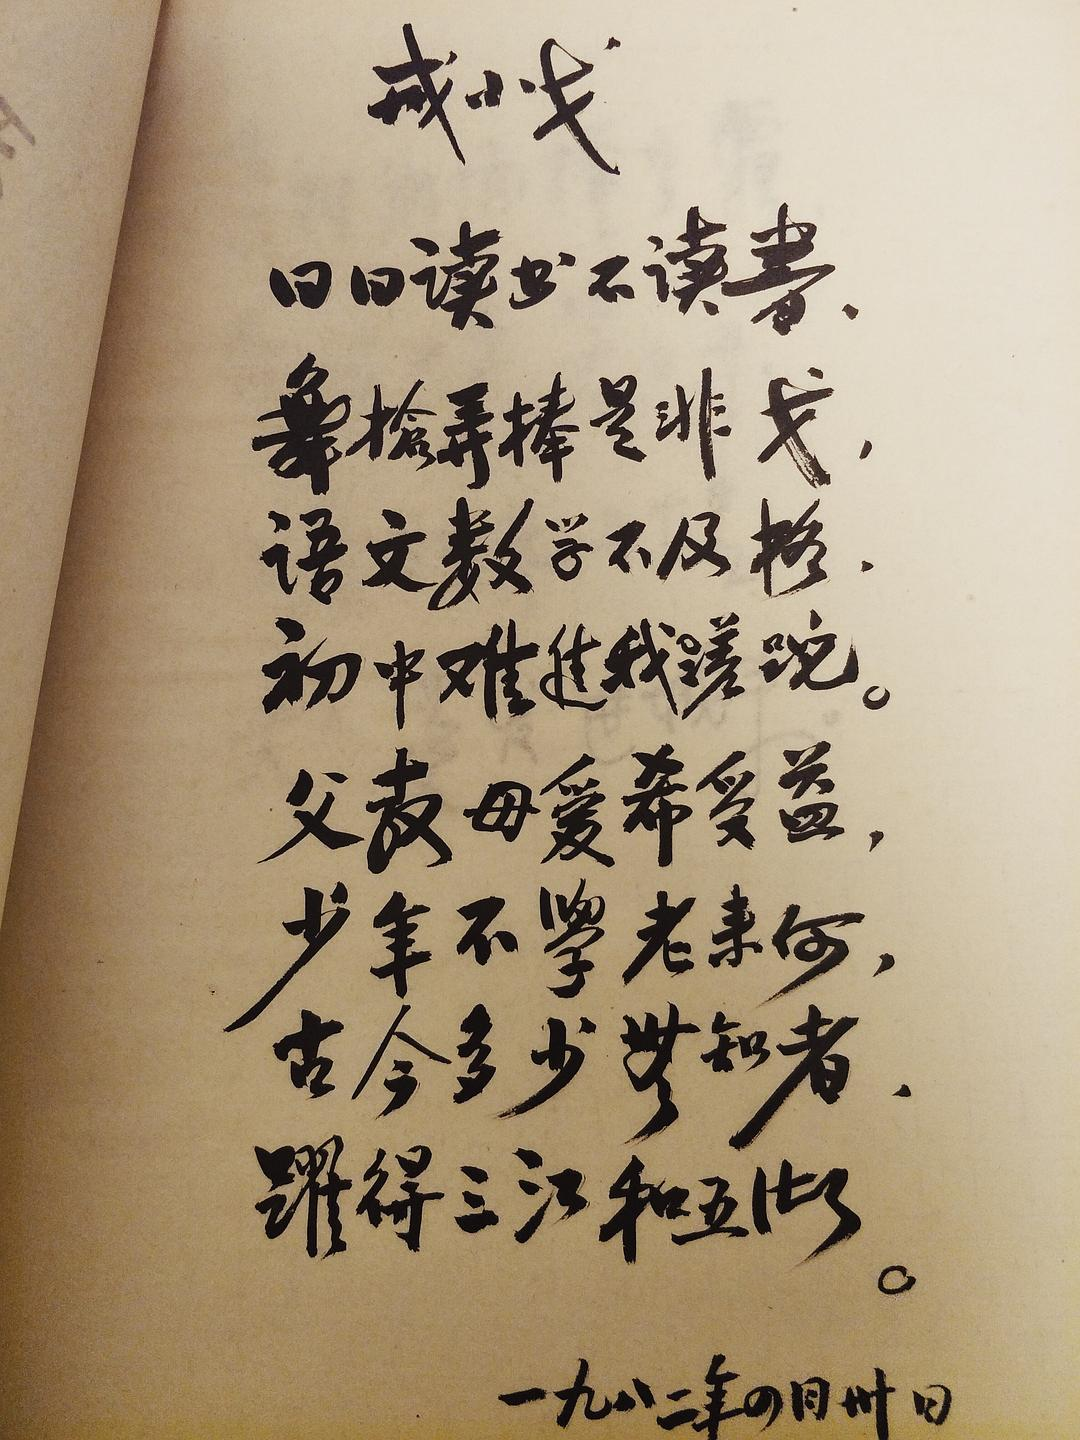 戒小戈
日日读书不读書、
舞槍弄棒是非戈，
语文数学不及格．
初中难进我蹉跎。
父教母爱希受益，
少年不學老来何，
古今多少無知者．
躍得三江和五湖。
一九八二年四月卅日